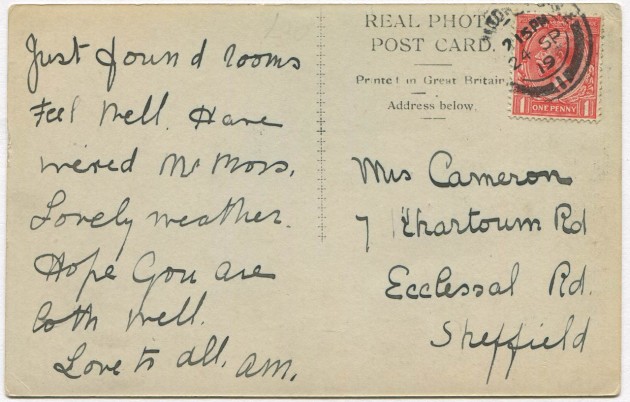 REAL PHOTO
POST CARD.
Printed in Great Britain
Address below.
2.15PM
24 SP
19
ONE PENNY
1 1
Just found rooms
Feel Well. Have
wired Mr Moss.
Lovely weather.
Hope You are
both Well.
Love to all. am.
Mrs Cameron
7 Khartoum Rd
Ecclessal Rd.
Sheffield